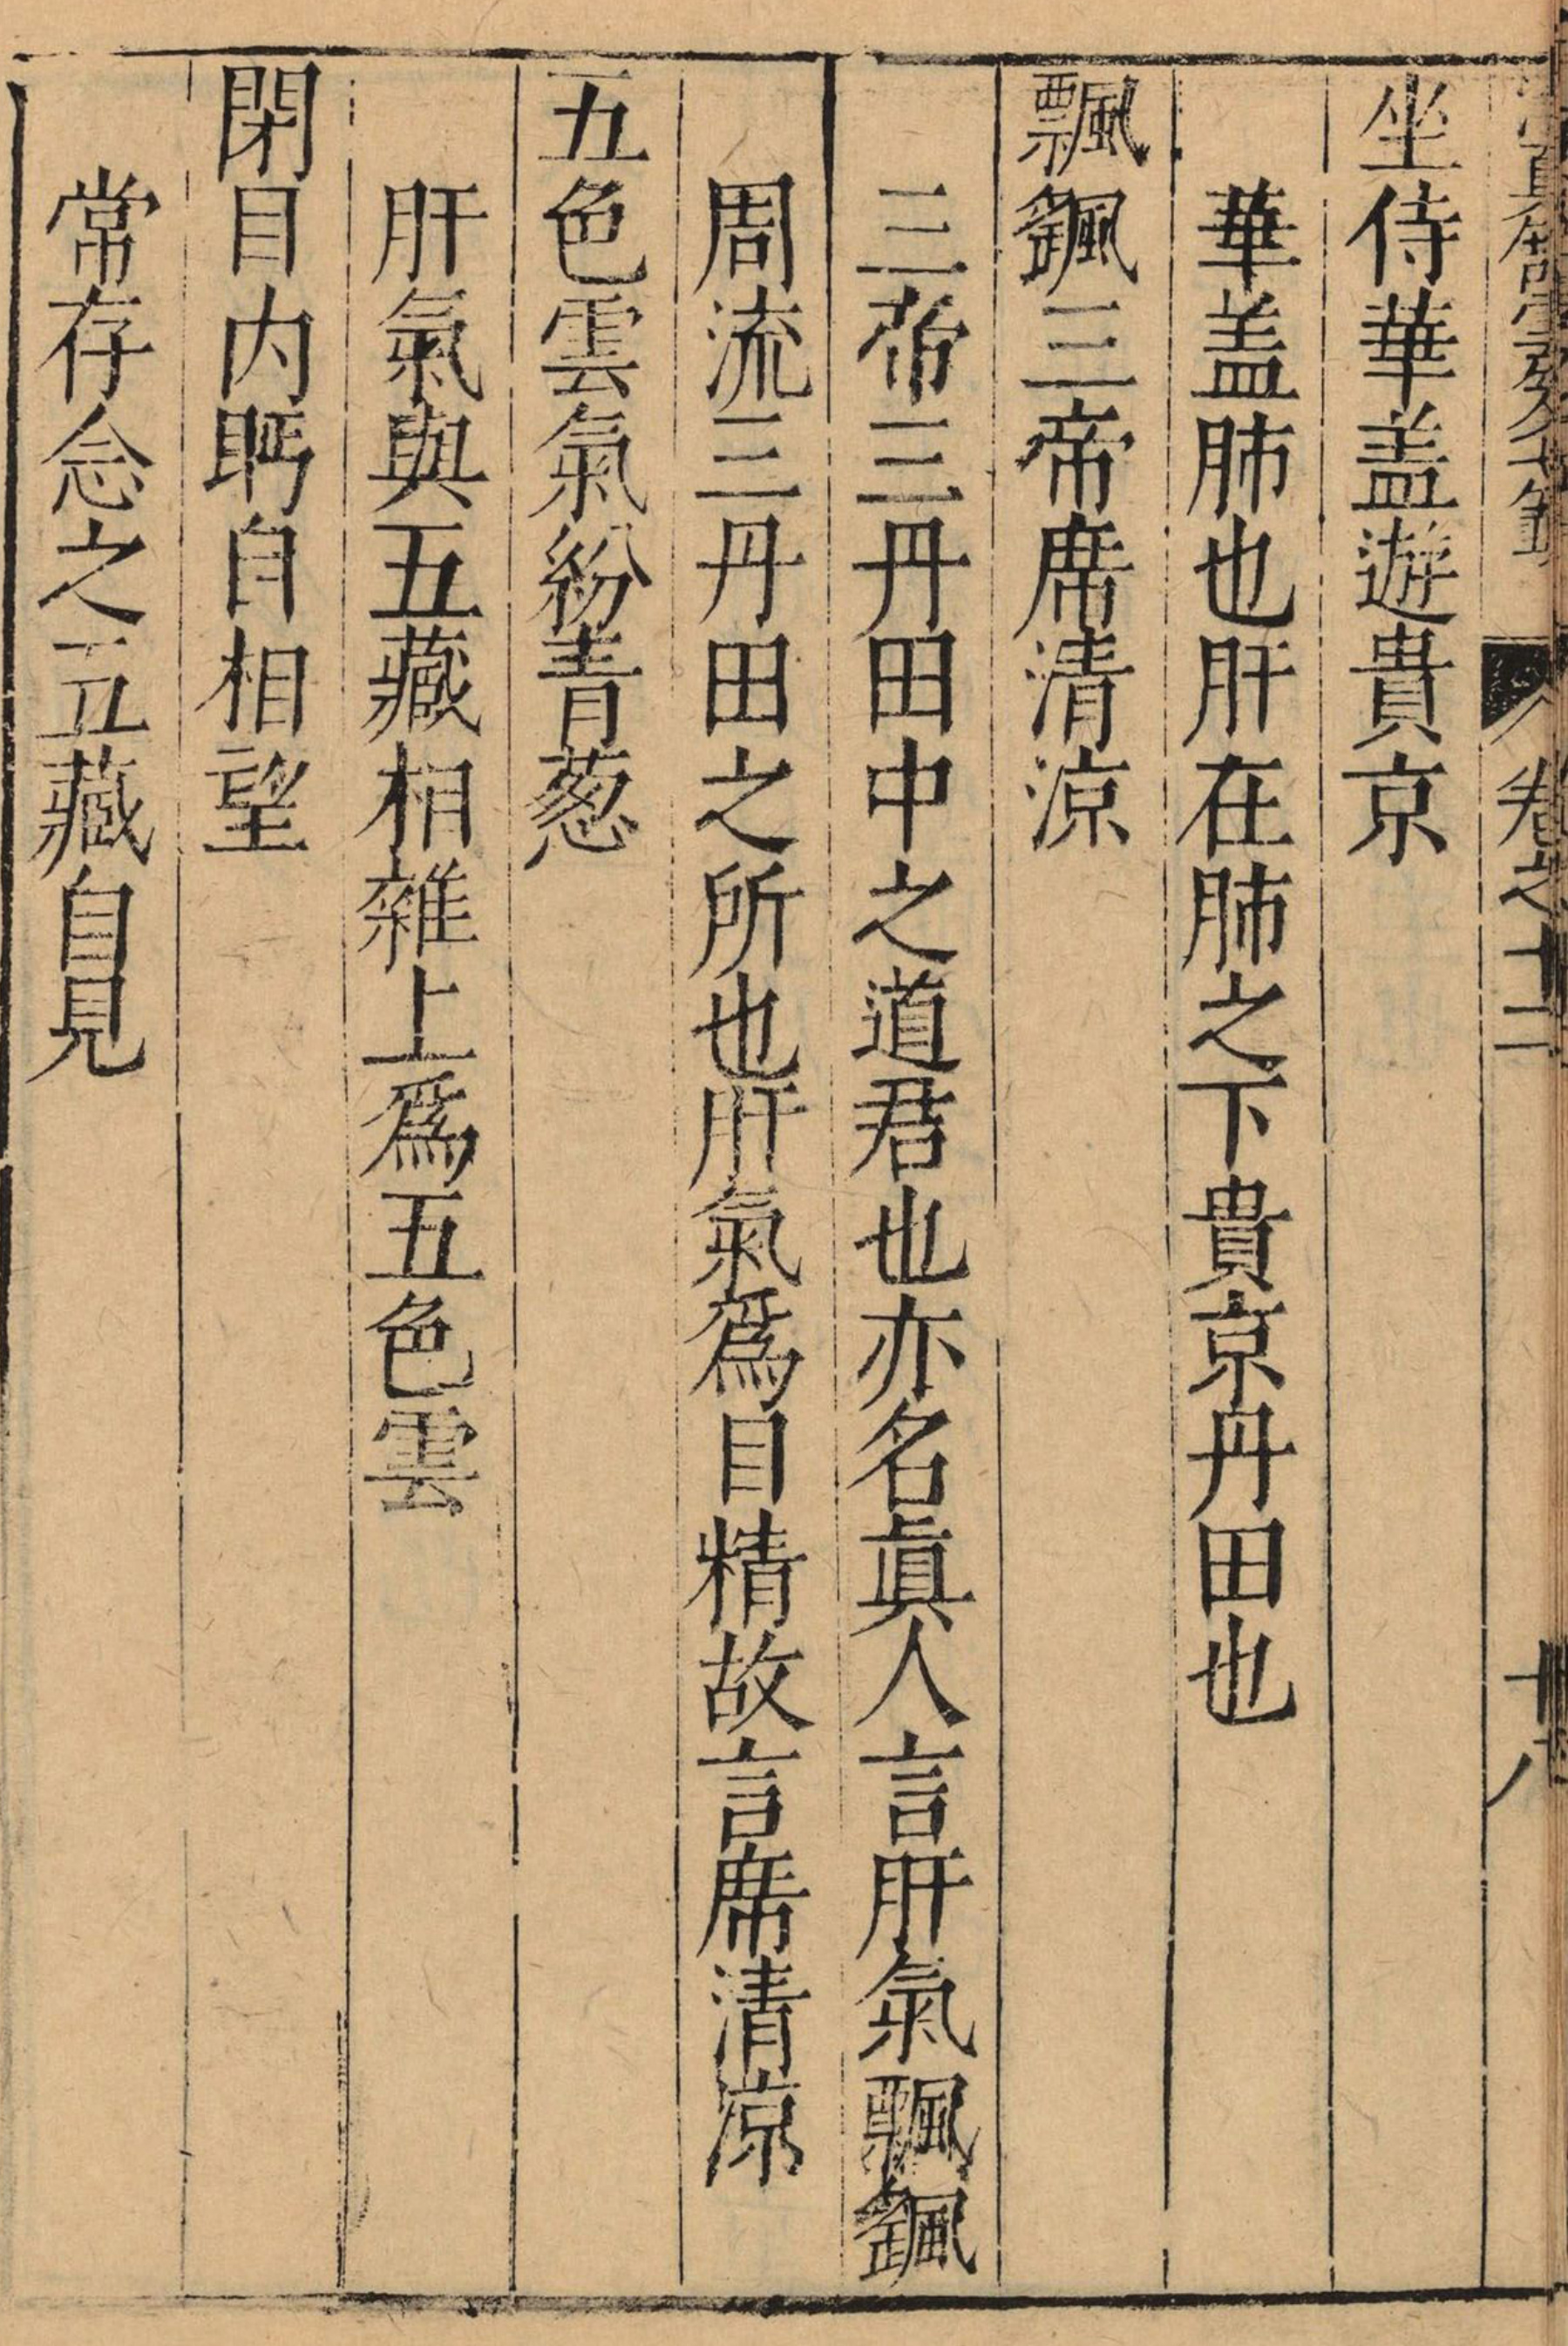 清真館雲笈七籤 卷之十二 十八
坐侍華盖遊貴京
華盖肺也肝在肺之下貴京丹田也
飄飖三帝席清涼
三帝三丹田中之道君也亦名眞人言肝氣飄飖
周流三丹田之所也肝氣爲目精故言席清凉
五色雲氣紛青葱
肝氣與五藏相雜上爲五色雲
閉目内眄自相望
常存念之五藏自見